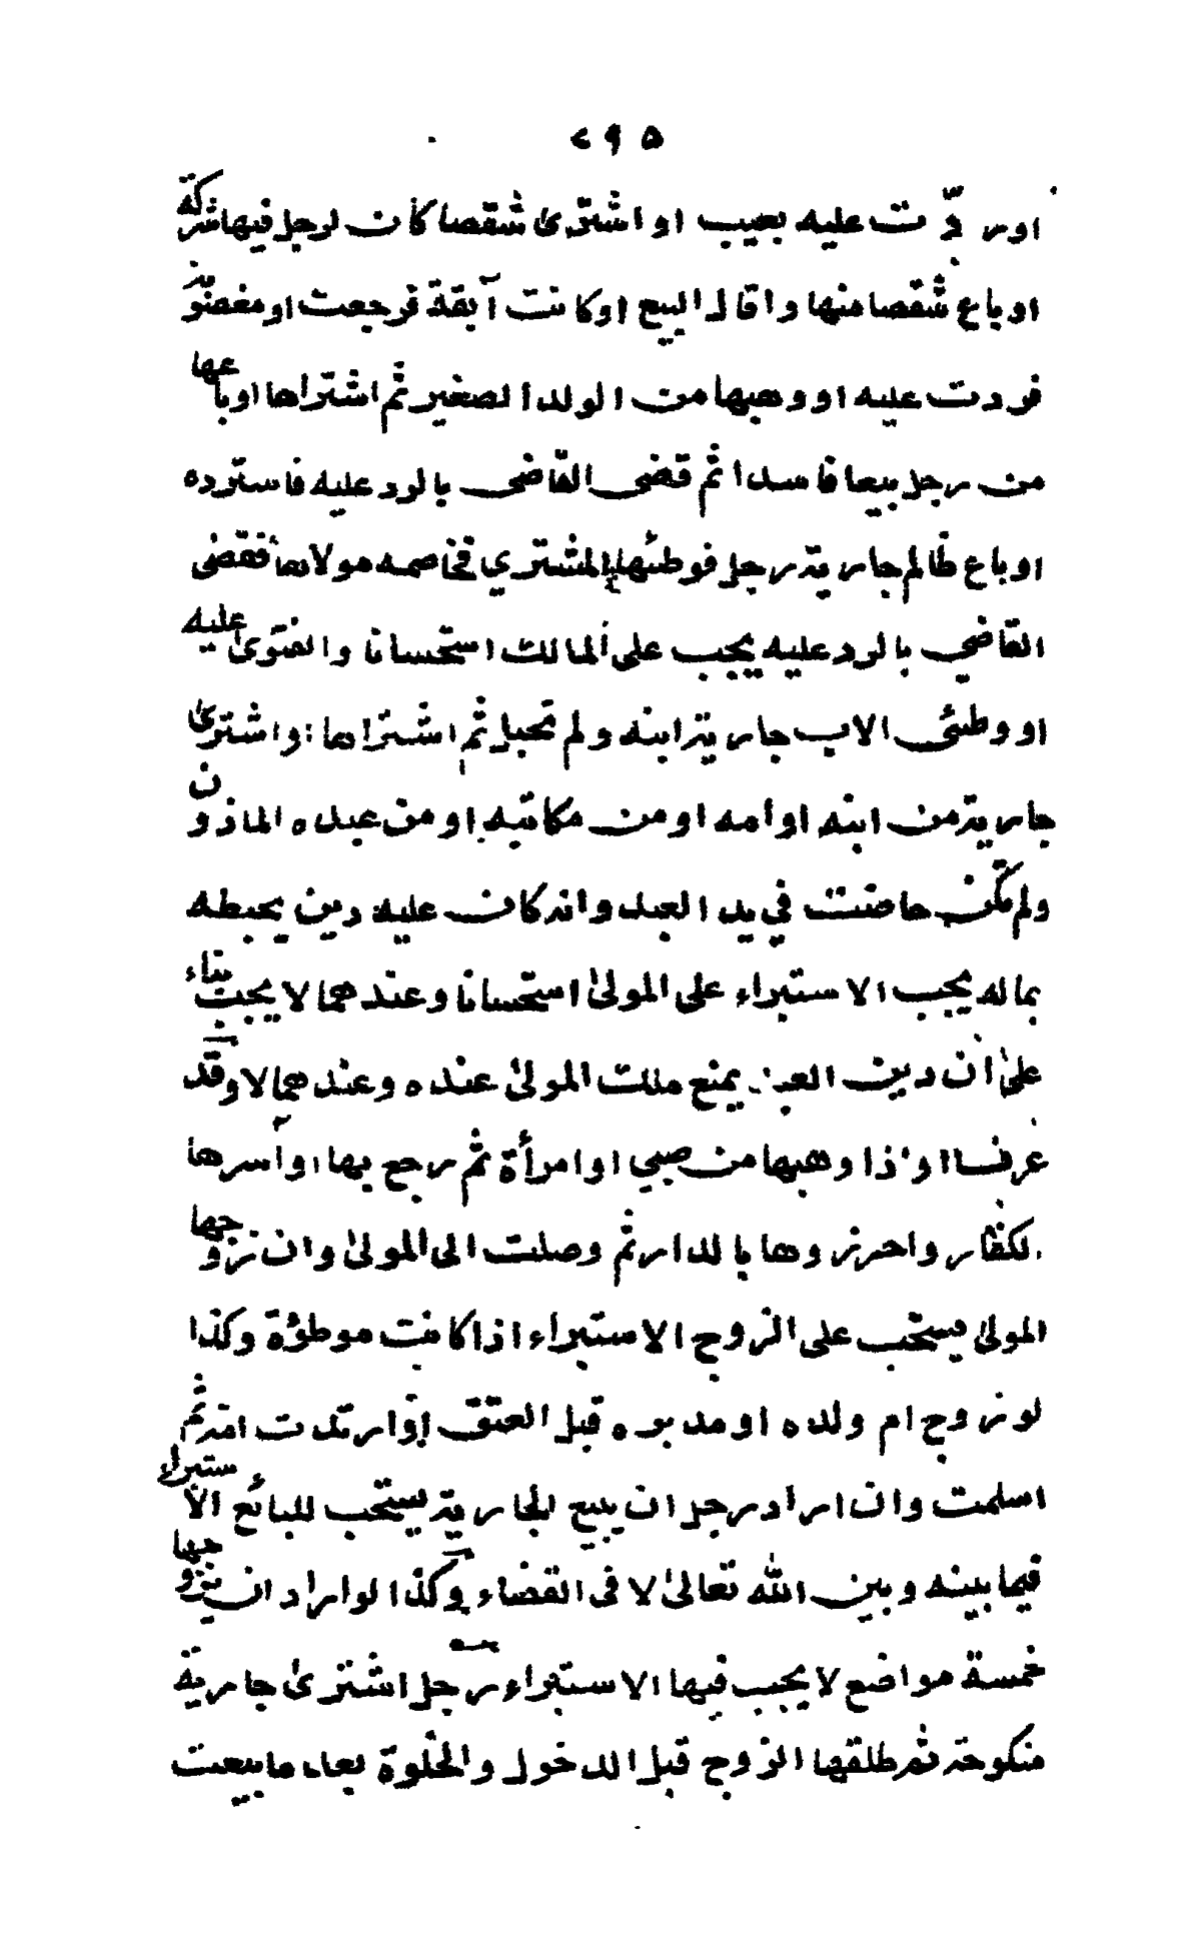 ٧٩٥
او ردت عليه بعيب او اشترى شقصا كان لرجل فيها شركة
او باع شقصا منها واقال البيع او كانت آبقة فرجعت او مغصوبة
فردت عليه او وهبها من الولد الصغير ثم اشتراها او باعها
من رجل بيعا فاسدا ثم قضى القاضى بالرد عليه فاسترده
او باع ظالم جارية رجل فوطئها المشتري فخاصمه مولاها فقضى
القاضي بالرد عليه يجب على المالك استحسانا والفتوى عليه
او وطئى الاب جارية ابنه ولم تحبل ثم اشتراها او اشترى
جارية من ابنه او امه او من مكاتبه او من عبده الماذون
ولم تكن حاضت في يد العبد وانه كان عليه دين يحيطه
بماله يجب الاستبراء على المولىٰ استحسانا وعندهما لا يجب بناء
علىٰ ان دين العبد يمنع ملك المولىٰ عنده وعندهما لا وقد
عرفنا او اذا وهبها من صبي او امرأة ثم رجع بها او آسرها
لكفار واحرزوها بالدار ثم وصلت الى المولىٰ وان زوجها
المولىٰ يستحب على الزوج الاستبراء اذا كانت موطؤة وكذا
لو زوج ام ولده او مدبره قبل العتق او ارتدت امته ثم
اسلمت وان اراد رجل ان يبيع الجارية يستحب للبائع الاستبراء
فيما بينه وبين الله تعالىٰ لا فى القضاء وكذا لو اراد ان يزوجها
خمسة مواضع لا يجب فيها الاستبراء رجل اشترىٰ جارية
منكوحة ثم طلقها الزوج قبل الدخول والخلوة بعد ما بيعت